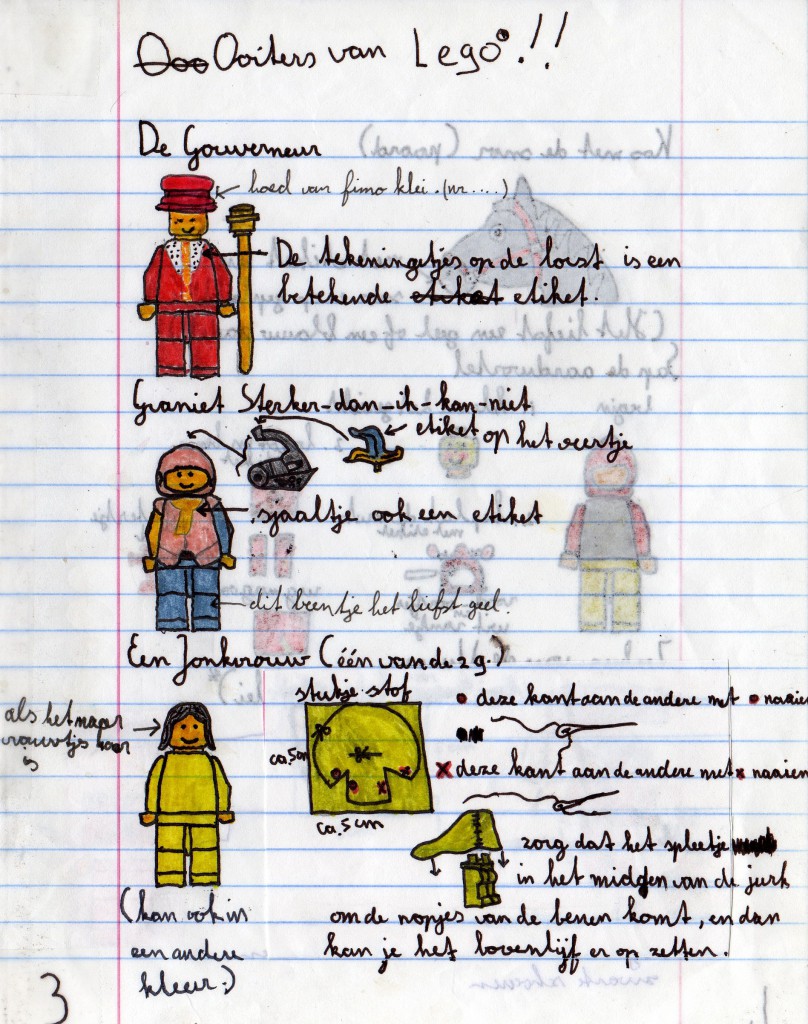 Ooiters van Lego!!
De Gouverneur
hoed van fimo klei. (nr....)
De tekeningetjes op de borst is een
betekende etiket etiket.
Graniet Sterker-dan-ik-kan-niet
etiket op het veertje
sjaaltje ook een etiket
dit beentje het liefst geel.
Een Jonkvrouw (één van de 2 g.)
als het maar
vrouwtjs haar
is
stukje stof
ca. 5 cm
ca. 5 cm
deze kant aan de andere met naaien
x deze kant aan de andere met x naaien
zorg dat het spleetje
in het midgen van de jurk
om de nopjes van de benen komt, en dan
kan je het bovenlijf er op zetten.
(kan ook in
een andere
kleur:)
3